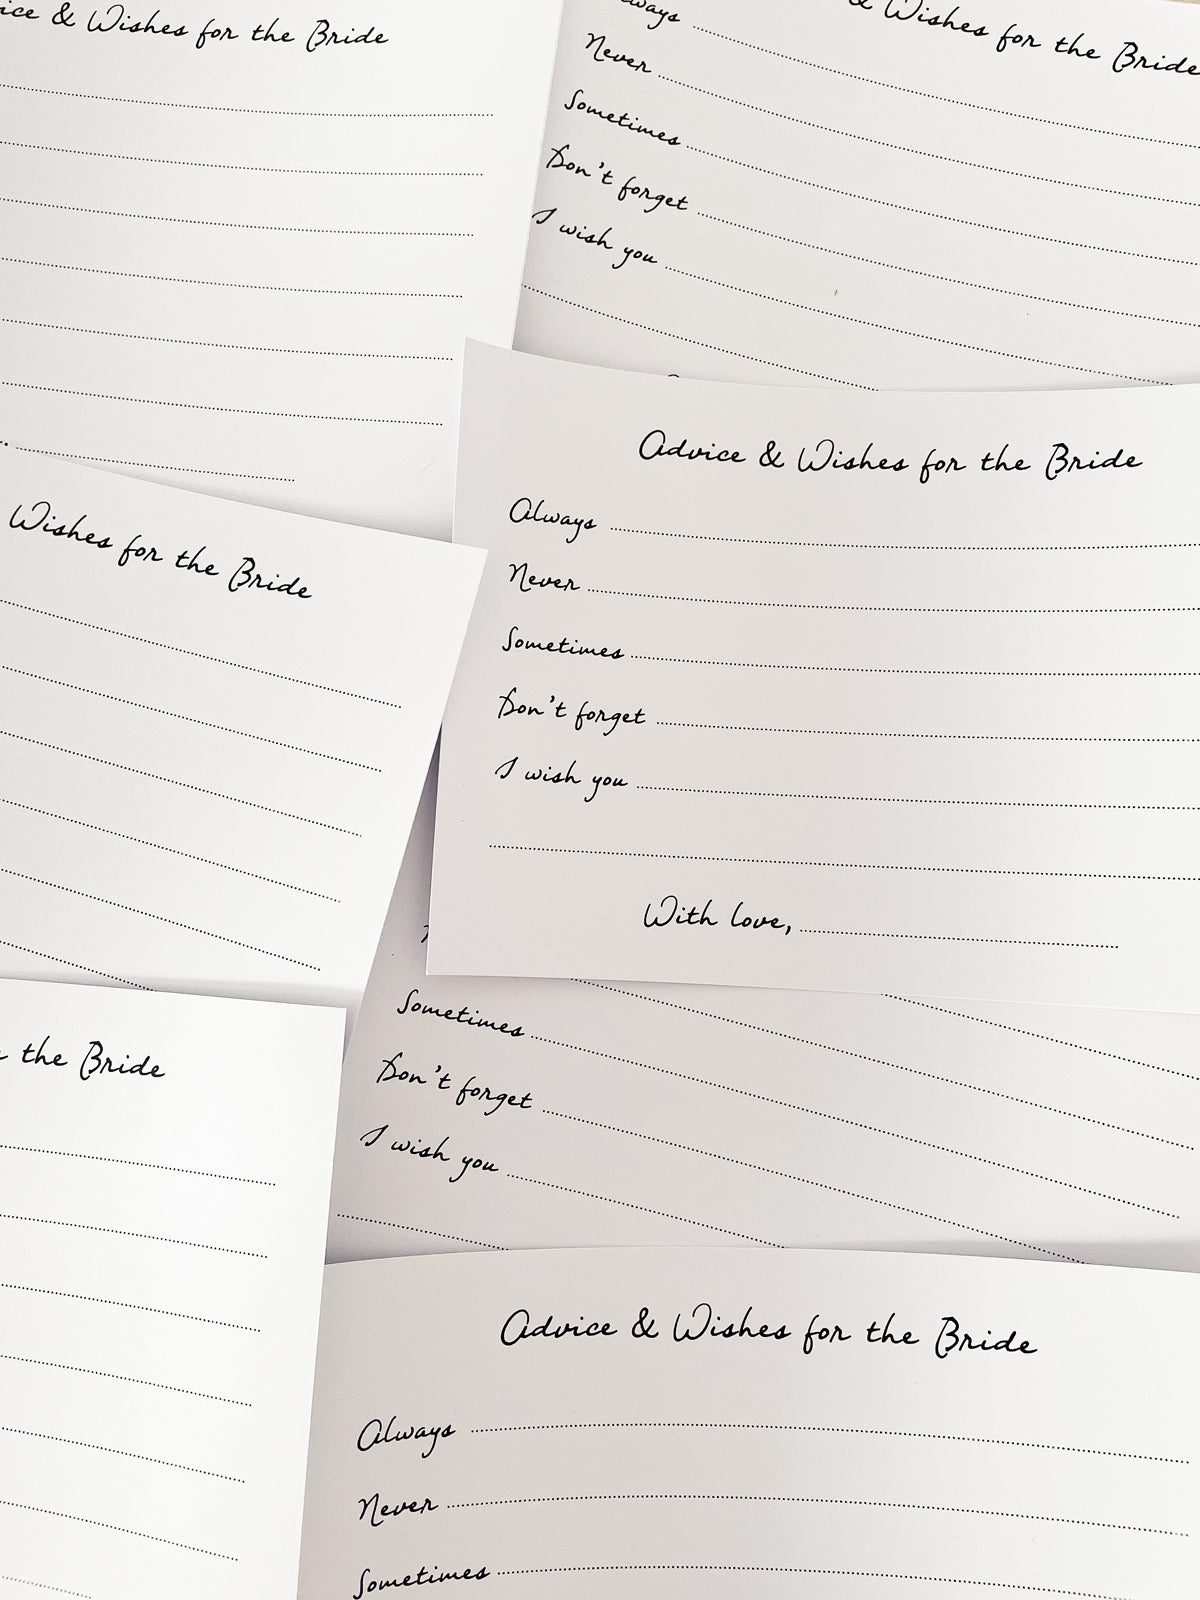 & Wishes for the Bride
Wishes for the Bride
Never
Sometimes
Don't forget
I wish you
Advice & Wishes for the Bride
Always
Never
Sometimes
Don't forget
I wish you
With love,
Wishes for the Bride
the Bride
Sometimes
Don't forget
I wish you
Advice & Wishes for the Bride
Always
Never
Sometimes